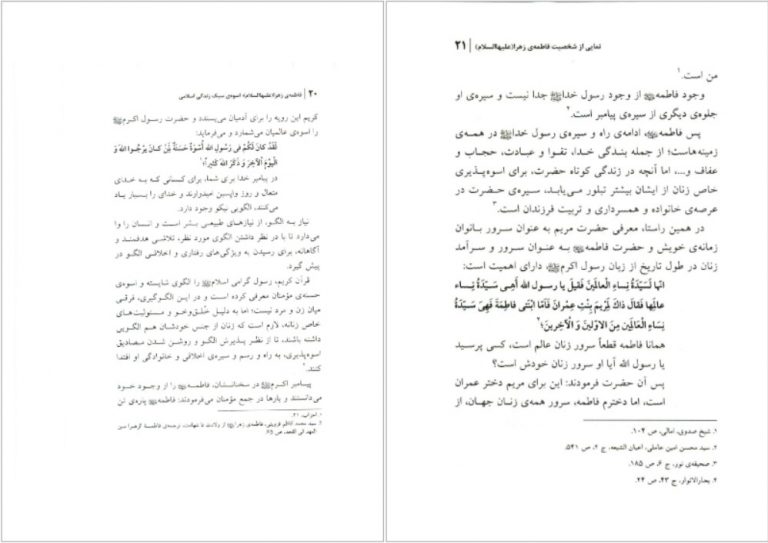 ۲۰ | فاطمه‌ی زهرا(علیهاالسلام) اسوه‌ی سبک زندگی اسلامی
کریم این رویه را برای آدمیان می‌پسندد و حضرت رسول اکرمﷺ
را اسوه‌ی عالمیان می‌شمارد و می‌فرماید:
لَقَد کانَ لَکُم فی رَسولِ اللهِ اُسوَةٌ حَسَنَةٌ لِمَن کـانَ یَرجُـوا اللهَ وَ
الیَومَ الآخِرَ وَ ذَکَرَ اللهَ کَثیراً؛۱
در پیامبر خدا برای شما، برای کسانی که به خدای
متعال و روز واپسین امیدوارند و خدای را بسیار یاد
می‌کنند، الگویی نیکو وجود دارد.
نیاز به الگو، از نیازهای طبیعی بشر است و انسان را وا
می‌دارد تا با در نظر داشتن الگوی مورد نظر، تلاشی هدفمند و
آگاهانه، برای رسیدن به ویژگی‌های رفتاری و اخلاقی الگو در
پیش گیرد.
قرآن کریم، رسول گرامی اسلامﷺ را الگوی شایسته و اسوه‌ی
حسنه‌ی مؤمنان معرفی کرده است و در این الگوگیری، فرقی
میان زن و مرد نیست؛ اما به دلیل خُلق‌وخو و مسئولیت‌های
خاص زنانه، لازم است که زنان از جنس خودشان هم الگویی
داشته باشند، تا از نظر پذیرش الگو و روشن شدن مصادیق
اسوه‌پذیری، به راه و رسم و سیره‌ی اخلاقی و خانوادگی او اقتدا
کنند.۲
پیامبر اکرمﷺ در سخنانشان، فاطمه را از وجود خود
می‌دانستند و بارها در جمع مؤمنان می‌فرمودند: فاطمه پاره‌ی تن
۱. احزاب، ۲۱.
۲. سید محمد کاظم قزوینی، فاطمه‌ی زهرا از ولادت تا شهادت، ترجمه‌ی فاطمة الزهرا من
المهد الی اللحد، ص
نمایی از شخصیت فاطمه‌ی زهرا(علیهاالسلام) | ۲۱
من است.۱
وجود فاطمه از وجود رسول خداﷺ جدا نیست و سیره‌ی او
جلوه‌ی دیگری از سیره‌ی پیامبر است.۲
پس فاطمه، ادامه‌ی راه و سیره‌ی رسول خداﷺ در همه‌ی
زمینه‌هاست؛ از جمله بندگی خدا، تقوا و عبادت، حجـاب و
عفاف و...، اما آنچه در زندگی کوتاه حضرت، برای اسوه‌پذیری
خاص زنان از ایشان بیشتر تبلور می‌یابـد، سیره‌ی حضرت در
عرصه‌ی خانواده و همسرداری و تربیت فرزندان است.۳
در همین راستا، معرفی حضرت مریم به عنوان سرور بـانوان
زمانه‌ی خویش و حضرت فاطمه به عنوان سرور و سرآمد
زنان در طول تاریخ از زبان رسول اکرمﷺ دارای اهمیت است:
انَّها لَسَیِّدَةُ نِساءِ العالَمینَ فَقیلَ یا رسول الله أهِـیَ سَـیِّدَةُ نِسـاء
عالَمِها فَقالَ ذاکَ لِمَریَمَ بِنتِ عِمرانَ فَاَمّا اِبنَتی فاطِمَة فَهِیَ سَیِّدَةُ
نِساءِ العالَمینَ مِنَ الاَوَّلینَ وَ الآخِرینَ؛۴
همانا فاطمه قطعاً سرور زنان عالم است، کسی پرسید
یا رسول الله آیا او سرور زنان خودش است؟
پس آن حضرت فرمودند: این برای مریم دختر عمران
است، اما دخترم فاطمه، سرور همه‌ی زنـان جهـان، از
۱. شیخ صدوق، امالی، ص ۱۰۴.
۲. سید محسن امین عاملی، اعیان الشیعه، ج ۲، ص ۵۴۱.
۳. صحیفه‌ی نور، ج ۶، ص ۱۸۵.
۴. بحارالانوار، ج ۴۳، ص ۲۴.